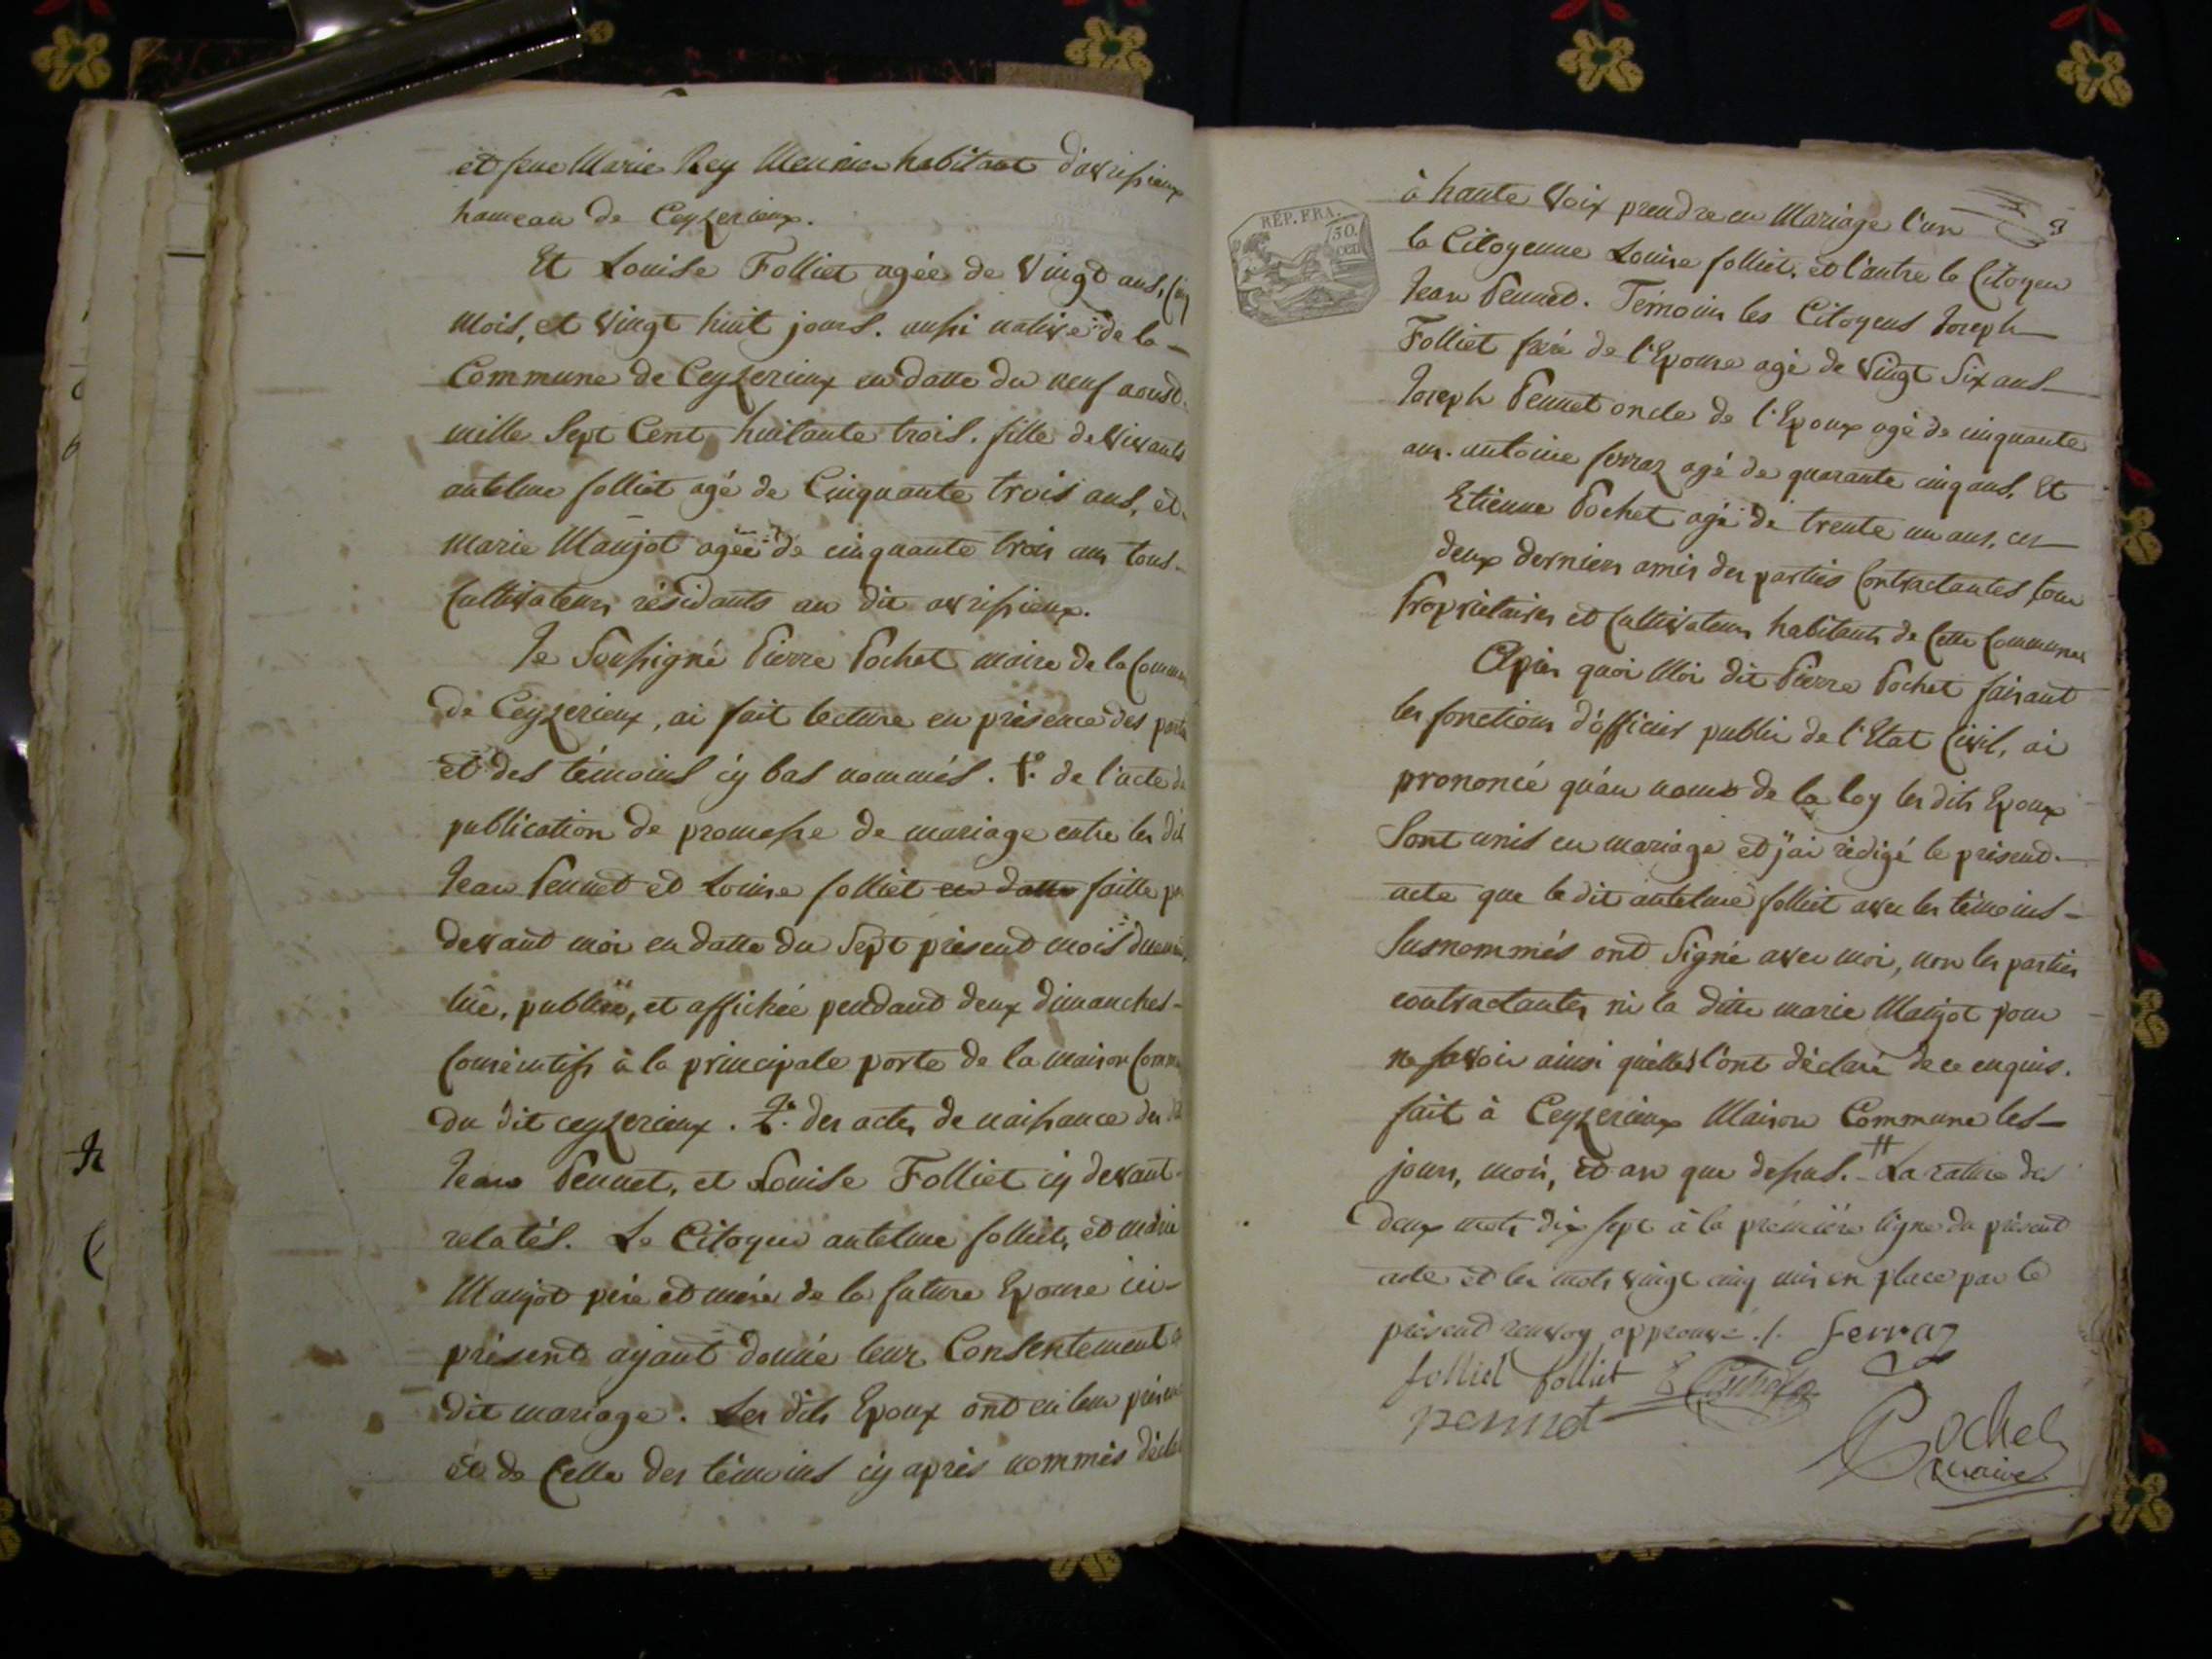 et feue Marie Rey Meunier habitant d'avrissieux
hameau de Ceyzerieux.
Et Louise Folliet agée de Vingt ans, Cinq
mois, et Vingt huit jours. aussi native de la
Commune de Ceyzerieux en datte du neuf aoust
mille Sept Cent huitante trois. fille de Vivants
antelme folliet agé de Cinquante trois ans, et
marie Maujot agée de cinquante trois ans tous
Cultivateurs résidants au dit avrissieux.
Je Soussigné Pierre Pochet maire de la Commune
de Ceyzerieux, ai fait lecture en présence des parties
et des témoins cy bas nommés. 1.° de l'acte de
publication de promesse de mariage entre les dits
Jean Pennet et Louise folliet en datte faitte par
devant moi en datte du Sept présent mois duement
lüe, publiée, et affichée pendant deux dimanches
Consécutifs à la principale porte de la maison Commune
du dit ceyzerieux. 2.° des actes de naissance des dits
Jean Pennet, et Louise Folliet cy devant
relatés. Le Citoyen antelme folliet, et marie
Maujot père et mère de la future Epouse ici
présent ayant donné leur Consentement au
dit mariage. Les dits Epoux ont en leur présence
et de Celle des témoins cy après nommés déclaré
RÉP. FRA.
50.
cen
à haute Voix prendre en Mariage l'un
3
la Citoyenne Louise folliet, et l'autre le Citoyen
Jean Pennet. Témoins les Citoyens Joseph
Folliet frère de l'Epouse agé de Vingt Six ans
Joseph Pennet oncle de l'Epoux agé de cinquante
ans. antoine ferraz agé de quarante cinq ans, Et
Etienne Pochet agé de trente un ans, ces
deux derniers amis des parties Contractantes tous
Proprietaires et Cultivateurs habitants de Cette Commune
Après quoi Moi dit Pierre Pochet faisant
les fonctions d'officier public de l'Etat Civil, ai
prononcé qu'au nom de la loy les dits Epoux
Sont unis en mariage et j'ai rédigé le présent
acte que le dit antelme folliet avec les témoins
Susnommés ont Signé avec moi, non les parties
contractantes ni la ditte marie Maujot pour
ne savoir ainsi qu'elles l'ont déclaré de ce enquis.
fait à Ceyzerieux Maison Commune les
jours, mois, et an que dessus. - La rature des
deux mots dix sept à la première ligne du présent
acte et les mots vingt cinq mis en place par le
présent renvoy approuvé ./. ferraz
folliet folliet E Pochet
pennet
Pochet
maire